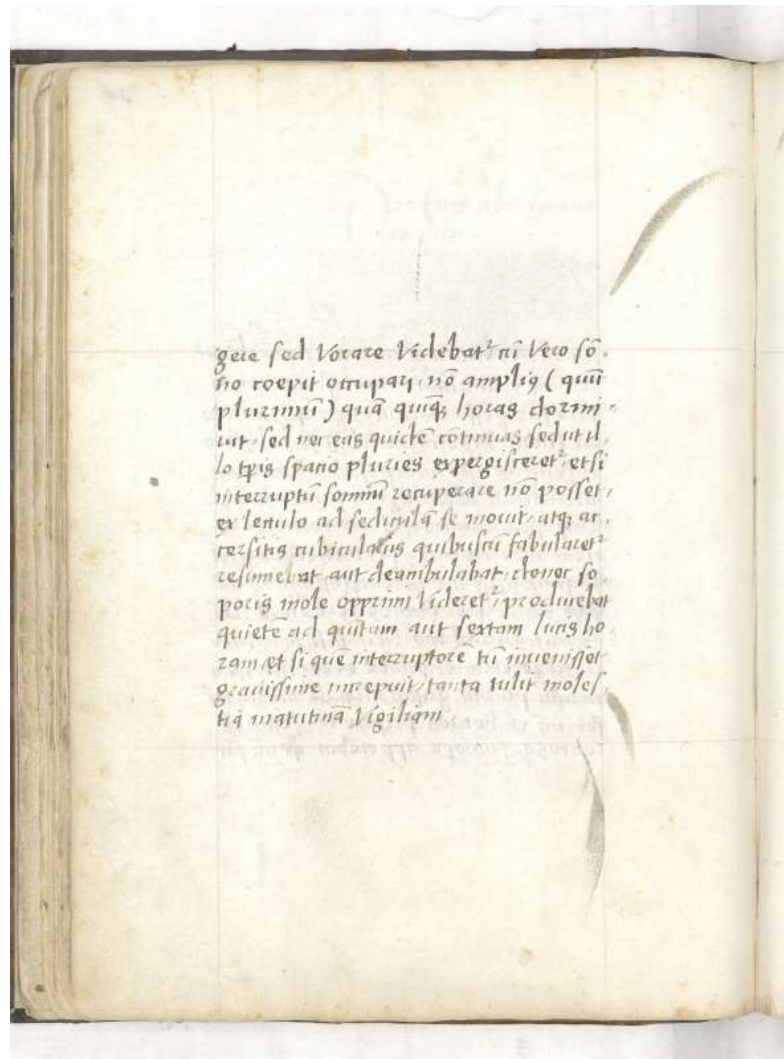 gere sed Vorare Videbat᷑, cũ Vero sõ,
no coepit occupari, nõ ampliꝯ ( quũ
plurimũ ) quã quiqꝫ horas dormi,
uit, sed nec eas quidẽ cõtinuas sed ut il,
lo tp̃is spacio pluries expergisceret᷑, et si
interruptũ somnũ recuperare nõ posset,
ex lectulo ad sediculã se mouit, atqꝫ ac,
cersitis cubiculariis quibuscũ fabularet᷑
resumebat aut deambulabat, donec so,
poris mole opprimi Videret᷑, producebat
quietẽ ad quĩtam aut sextam lucis ho,
ram, et si quẽ interruptorẽ tũ inuenisset
grauissime increpuit, tanta tulit moles,
tiã matutinã Vigiliam